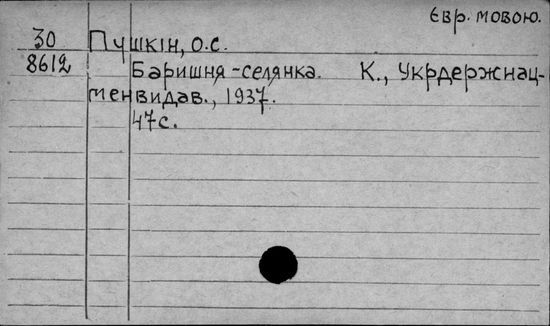 Євр. мовою.
30
8612
Пушкін, О.С.
Баришня-селянка. К., Укрдержнац-
менвидав., 1937.
47с.